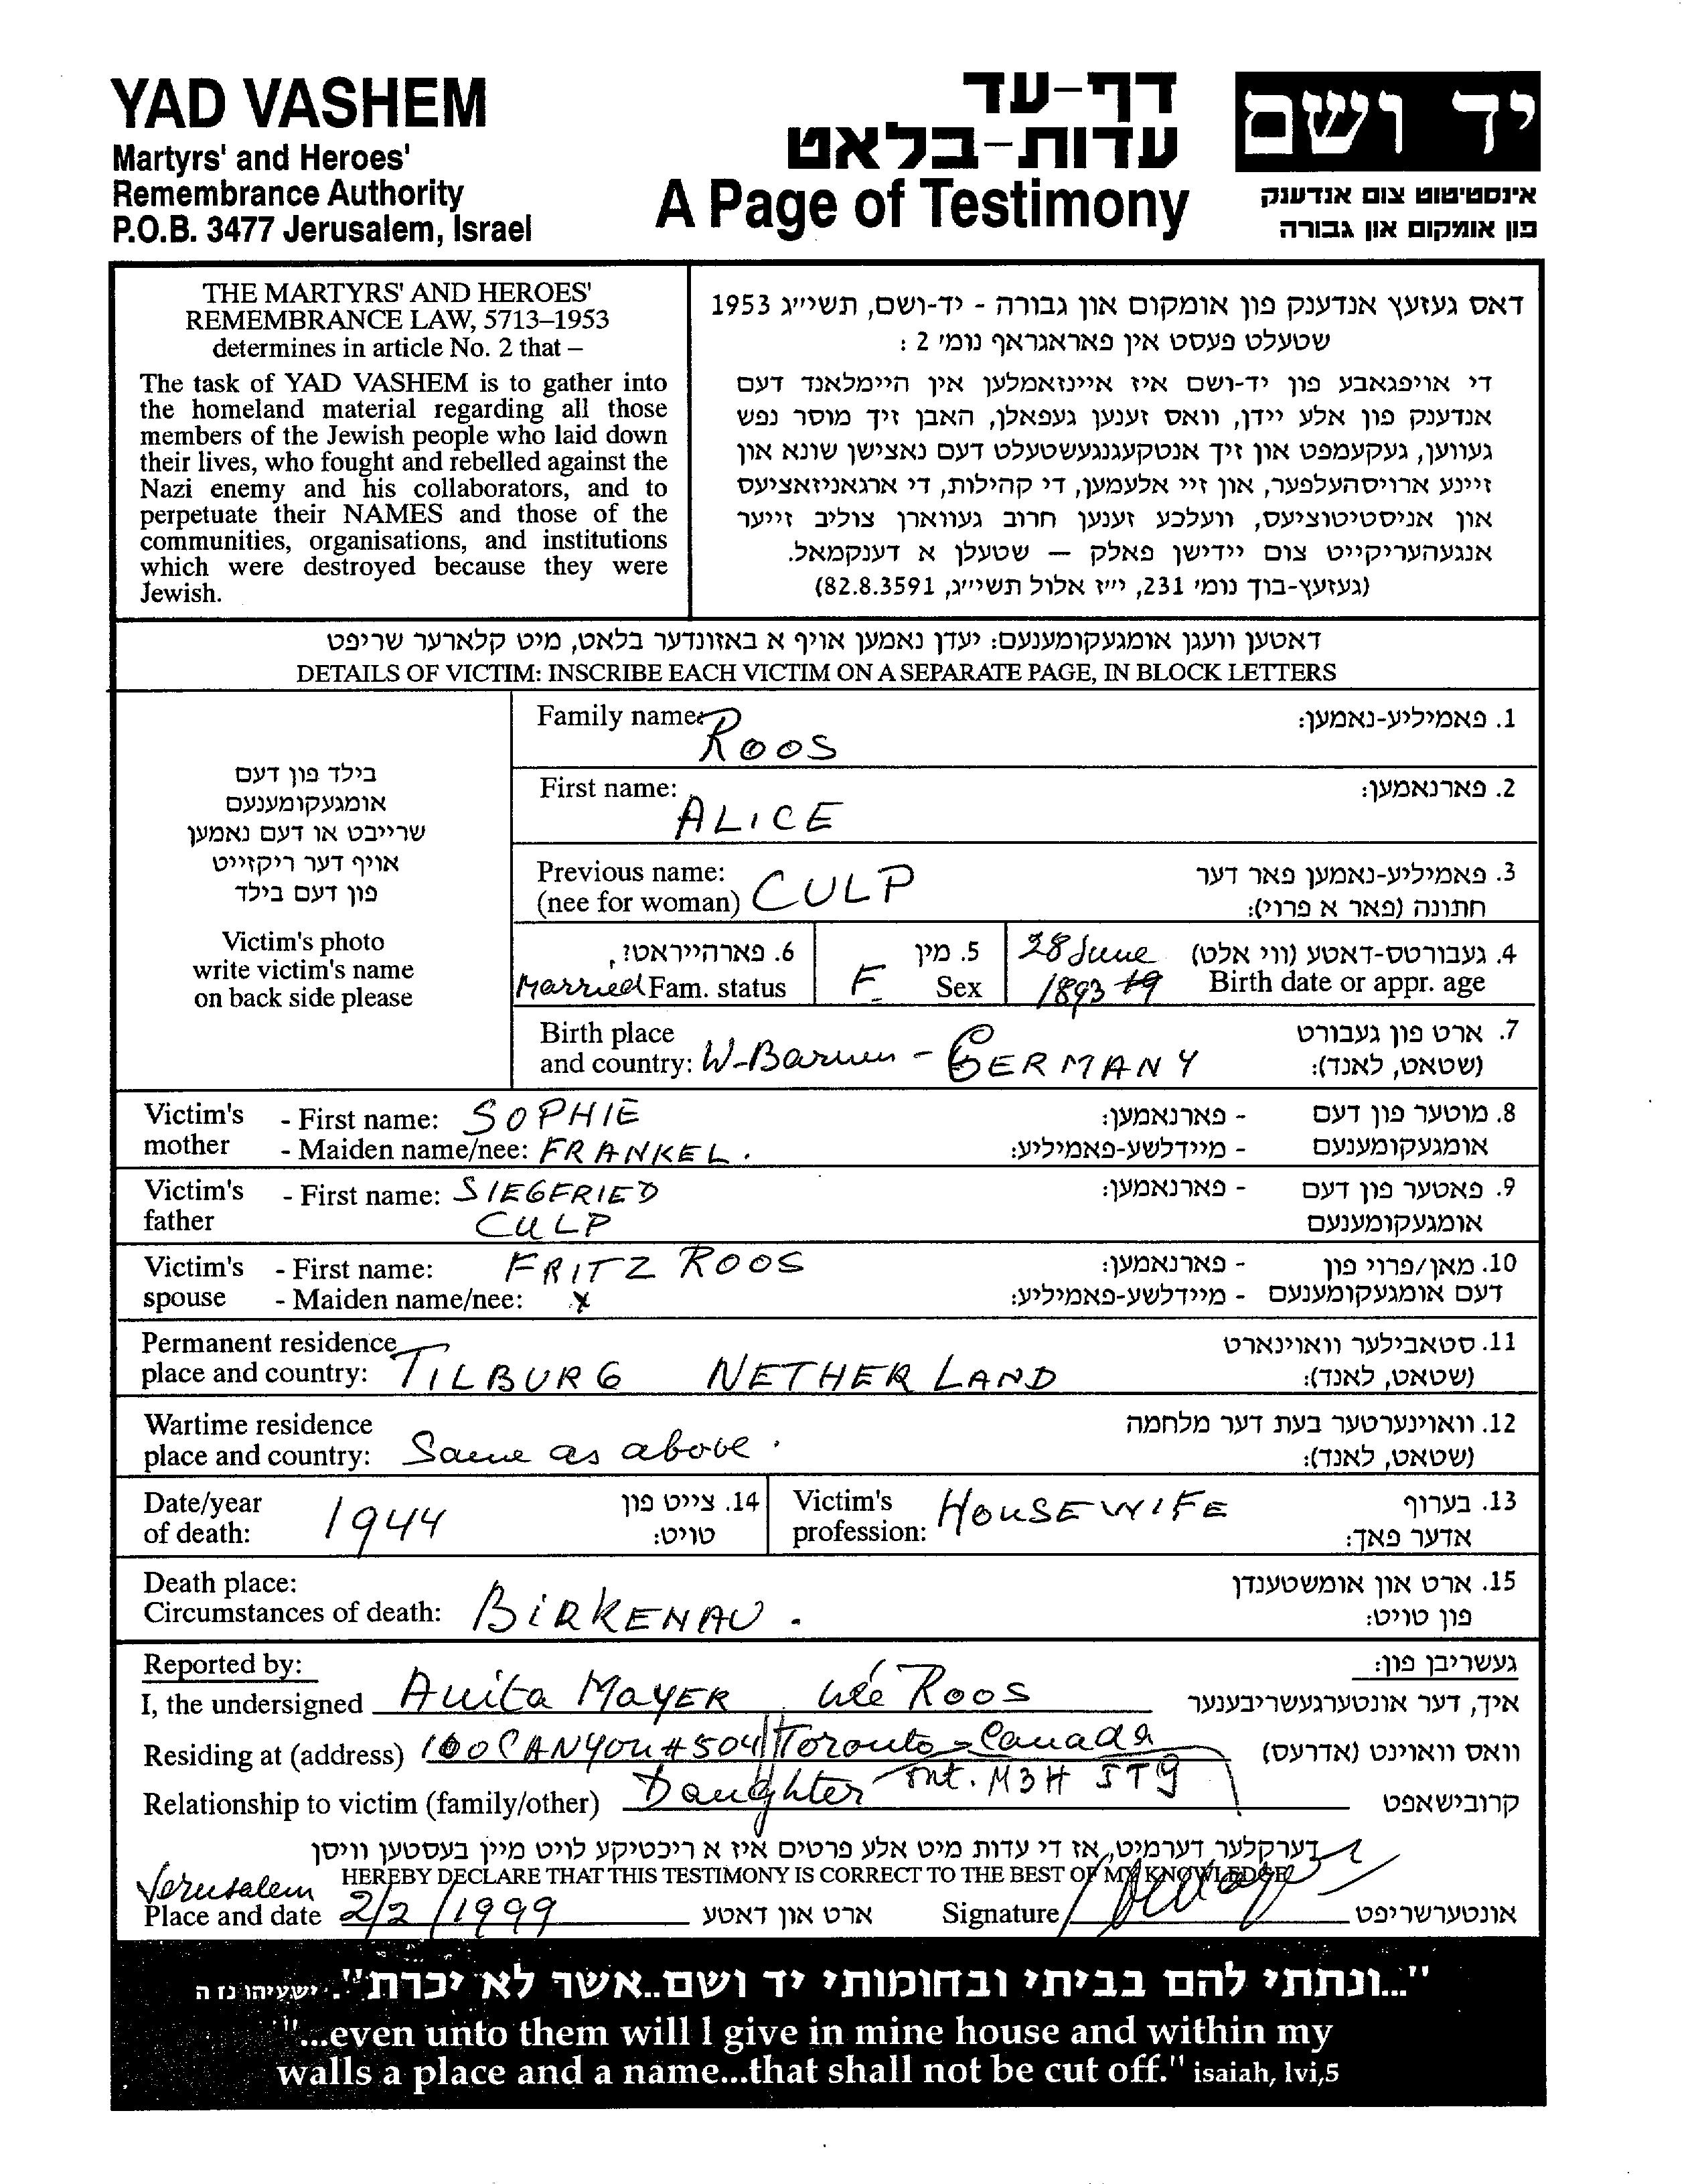 YAD VASHEM
Martyrs' and Heroes'
Remembrance Authority
P.O.B. 3477 Jerusalem, Israel
דף-עד
עדות-בלאט
A Page of Testimony
יד ושם
אינסטיטוט צום אנדענק
פון אומקום און גבורה
THE MARTYRS' AND HEROES'
REMEMBRANCE LAW, 5713–1953
determines in article No. 2 that –
The task of YAD VASHEM is to gather into
the homeland material regarding all those
members of the Jewish people who laid down
their lives, who fought and rebelled against the
Nazi enemy and his collaborators, and to
perpetuate their NAMES and those of the
communities, organisations, and institutions
which were destroyed because they were
Jewish.
דאס געזעץ אנדענק פון אומקום און גבורה - יד-ושם, תשי״ג 1953
שטעלט פעסט אין פאראגראף נומ׳ 2 :
די אויפגאבע פון יד-ושם איז איינזאמלען אין היימלאנד דעם
אנדענק פון אלע יידן, וואס זענען געפאלן, האבן זיך מוסר נפש
געווען, געקעמפט און זיך אנטקעגנגעשטעלט דעם נאצישן שונא און
זיינע ארויסהעלפער, און זיי אלעמען, די קהילות, די ארגאניזאציעס
און אניסטיטוציעס, וועלכע זענען חרוב געווארן צוליב זייער
אנגעהעריקייט צום יידישן פאלק — שטעלן א דענקמאל.
(געזעץ-בוך נומ׳ 231, י״ז אלול תשי״ג, 82.8.3591)
דאטען וועגן אומגעקומענעם: יעדן נאמען אויף א באזונדער בלאט, מיט קלארער שריפט
DETAILS OF VICTIM: INSCRIBE EACH VICTIM ON A SEPARATE PAGE, IN BLOCK LETTERS
בילד פון דעם
אומגעקומענעם
שרייבט או דעם נאמען
אויף דער ריקזייט
פון דעם בילד
Victim's photo
write victim's name
on back side please
Family name: ROOS 1. פאמיליע-נאמען:
First name: ALICE 2. פארנאמען:
Previous name: 3. פאמיליע-נאמען פאר דער
(nee for woman) CULP חתונה (פאר א פרוי):
6. פארהייראט?, 5. מין 28 June 4. געבורטס-דאטע (ווי אלט)
Married Fam. status F Sex 1893 19 Birth date or appr. age
Birth place 7. ארט פון געבורט
and country: W-Barmen - GERMANY (שטאט, לאנד):
Victim's - First name: SOPHIE - פארנאמען: 8. מוטער פון דעם
mother - Maiden name/nee: FRANKEL. - מיידלשע-פאמיליע: אומגעקומענעם
Victim's - First name: SIEGFRIED - פארנאמען: 9. פאטער פון דעם
father CULP אומגעקומענעם
Victim's - First name: FRITZ ROOS - פארנאמען: 10. מאן/פרוי פון
spouse - Maiden name/nee: x - מיידלשע-פאמיליע: דעם אומגעקומענעם
Permanent residence 11. סטאבילער וואוינארט
place and country: TILBURG NETHERLAND (שטאט, לאנד):
Wartime residence 12. וואוינערטער בעת דער מלחמה
place and country: Same as above. (שטאט, לאנד):
Date/year 14. צייט פון Victim's 13. בערוף
of death: 1944 טויט: profession: HOUSEWIFE אדער פאך:
Death place: 15. ארט און אומשטענדן
Circumstances of death: BIRKENAU. פון טויט:
Reported by: געשריבן פון:
I, the undersigned Anita MAYER née ROOS איך, דער אונטערגעשריבענער
Residing at (address) 100 CANYON #504 Toronto - Canada וואס וואוינט (אדרעס)
Ont. M3H 5T9
Relationship to victim (family/other) Daughter קרובישאפט
דערקלער דערמיט, אז די עדות מיט אלע פרטים איז א ריכטיקע לויט מיין בעסטען וויסן
HEREBY DECLARE THAT THIS TESTIMONY IS CORRECT TO THE BEST OF MY KNOWLEDGE
Jerusalem
Place and date 2/2/1999 ארט און דאטע Signature אונטערשריפט
"...ונתתי להם בביתי ובחומותי יד ושם..אשר לא יכרת". ישעיהו נז ה
"...even unto them will I give in mine house and within my
walls a place and a name...that shall not be cut off." isaiah, lvi,5